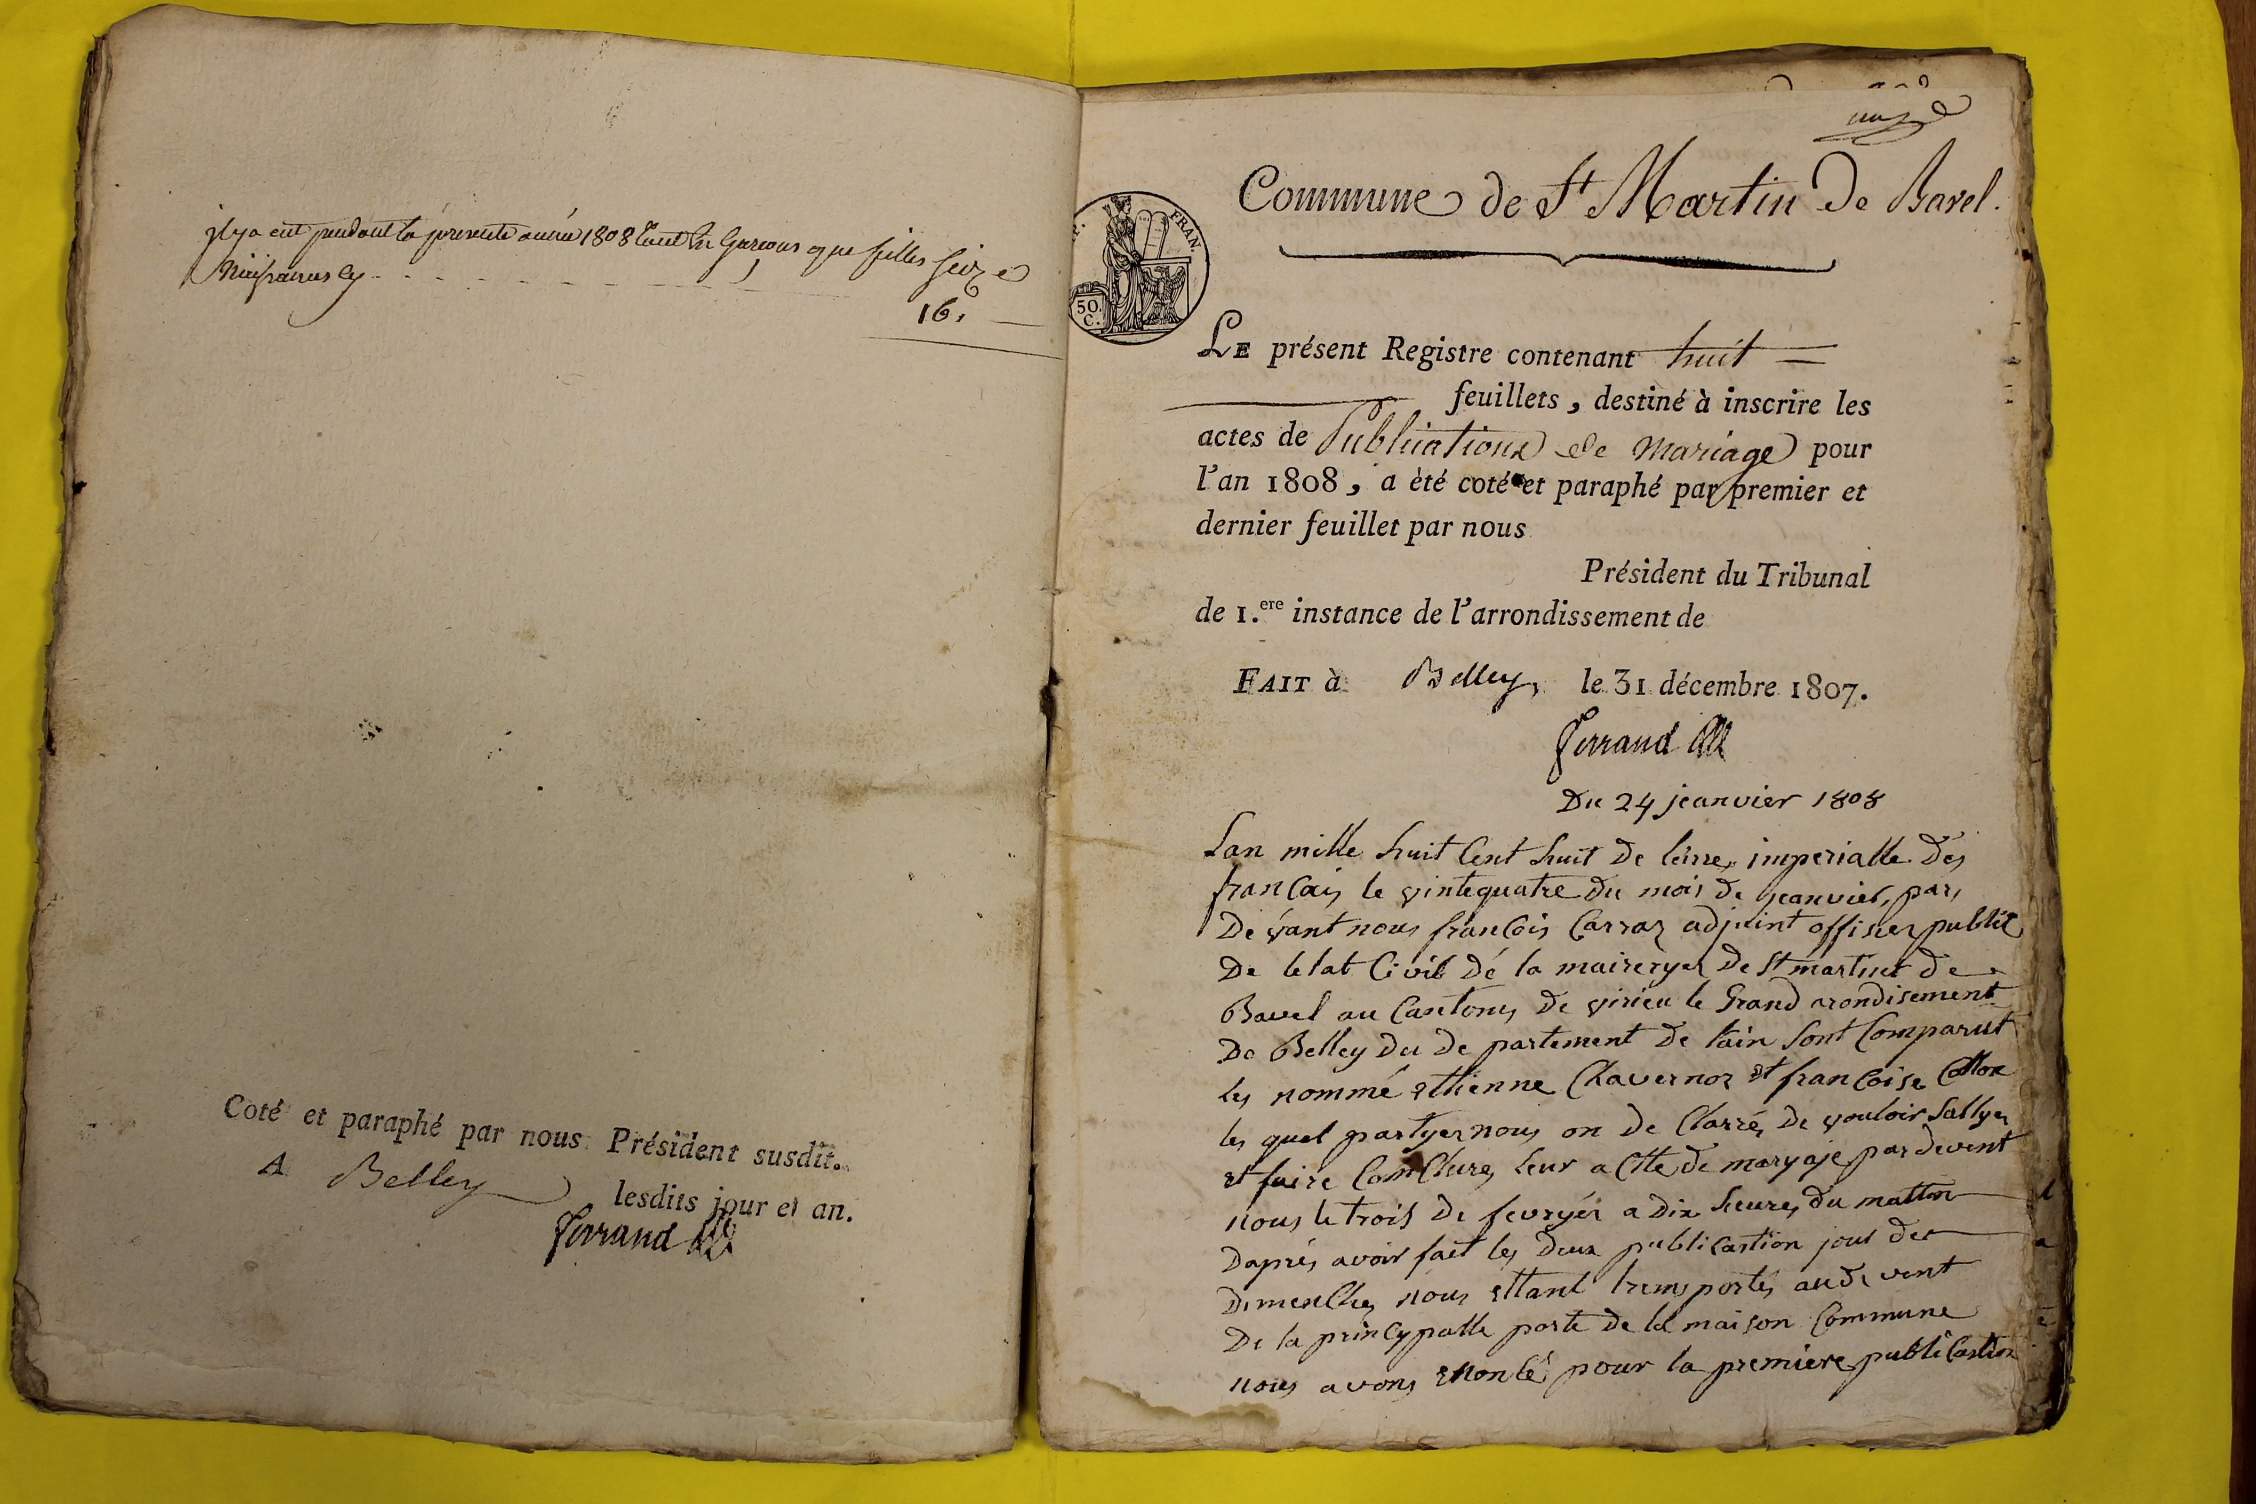 il y a eut pendant la presente année 1808 tant en Garçons que filles seize
Naissances cy
16.
Coté et paraphé par nous Président susdit.
A Belley lesdits jour et an.
Ferrand
Commune de St Martin De Bavel.
FRAN.
50
C.
LE présent Registre contenant huit
feuillets, destiné à inscrire les
actes de Publications de Mariage pour
l'an 1808, a èté coté et paraphé par premier et
dernier feuillet par nous
Président du Tribunal
de 1.ere instance de l'arrondissement de
FAIT à Belley, le 31 décembre 1807.
Ferrand
Du 24 jeanvier 1808
Lan mille huit Cent huit De leirre imperialle Des
franCais le vintequatre Du mois De jeanvier, par
De vant nous franCois Carraz adjoint offisier publit
De letat Civil Dé la maireryer De St martint De
Bavel au Cantons De virieu le Grand arondisement
De Belley du De partement De lain Sont Comparut
les nommé ethienne Chavernoz et franCoise
les quel partyer nous on De Clarré De vouloir Sallyer
et faire ComClure leur aCtte De maryaje par devent
nous le trois De fevryér a Dix heures du mattin
Daprés avoir fait les Deux publiCastion jour der
DimenChes nous ettant trensportés audevent
De la prinCypalle porte De la maison Commune
nous avons enonCé pour la premiere publiCastion